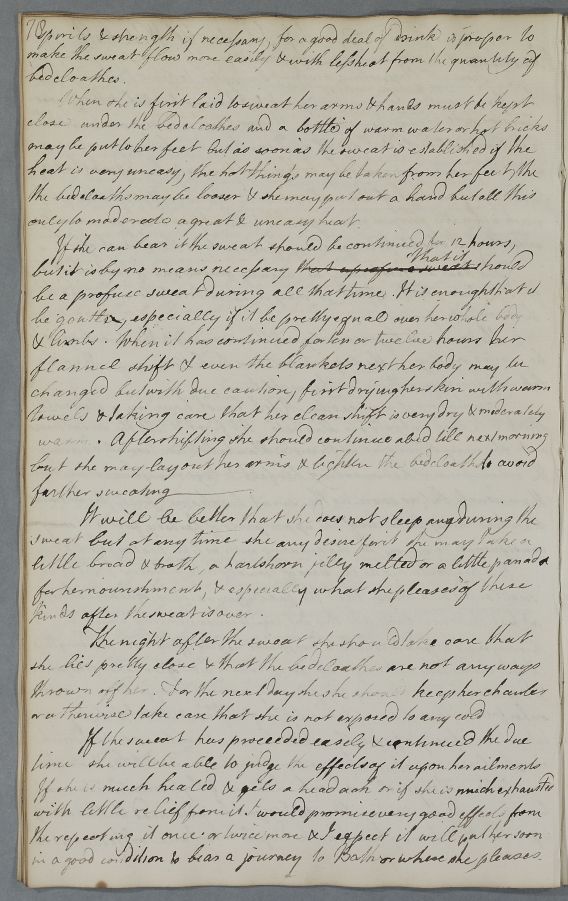 78
spirits & strength if necessary, for a good deal of Drink is proper to
make the sweat flow more easily & with less heat from the quantity of
bedcloathes.
When she is first laid to sweat her arms & hands must be kept
close under the bedcloathes and a bottle of warm water or hot bricks
may be put to her feet but as soon as the sweat is established if the
heat is very uneasy, the hot things may be taken from her feet, the
the bedcloaths may be looser & she may put out a hand but all this
only to moderate a great & uneasy heat.
If she can bear it the sweat should be continued for 12 hours,
but it is by no means necessary that a profuse sweat That it should
be a profuse sweat during all that time. It is enough that it
be gentle, especially if it be pretty equal over her whole body
& limbs. When it has continued for ten or twelve hours her
flannel shift & even the blankets next her body may be
changed but with due caution, first drying her skin with warm
towels & taking care that her clean shift is very dry & moderately
warm. After shifting she should continue abed till next morning
but she may lay out her arms & lighten the bedcloaths to avoid
farther sweating
It will be better that she does not sleep any during the
sweat but at any time she any desire for it she may take a
little bread & broth, a hartshorn jelly melted or a little panada
for her nourishment, & especially what she pleases of these
kinds after the sweat is over.
The night after the sweat she should take care that
she lies pretty close & that the bedcloathes are not any ways
thrown off her. For the next day she she should keep her chamber
or otherwise take care that she is not exposed to any cold
If the sweat has proceeded easily & continued the due
time she will be able to judge the effects of it upon her ailments
If she is much heated & gets a headach or if she is much exhausted
with little relief from it I would promise very good effects from
the repeating it once or twice more & I expect it will put her soon
in a good condition to bear a journey to Bath or where she pleases.